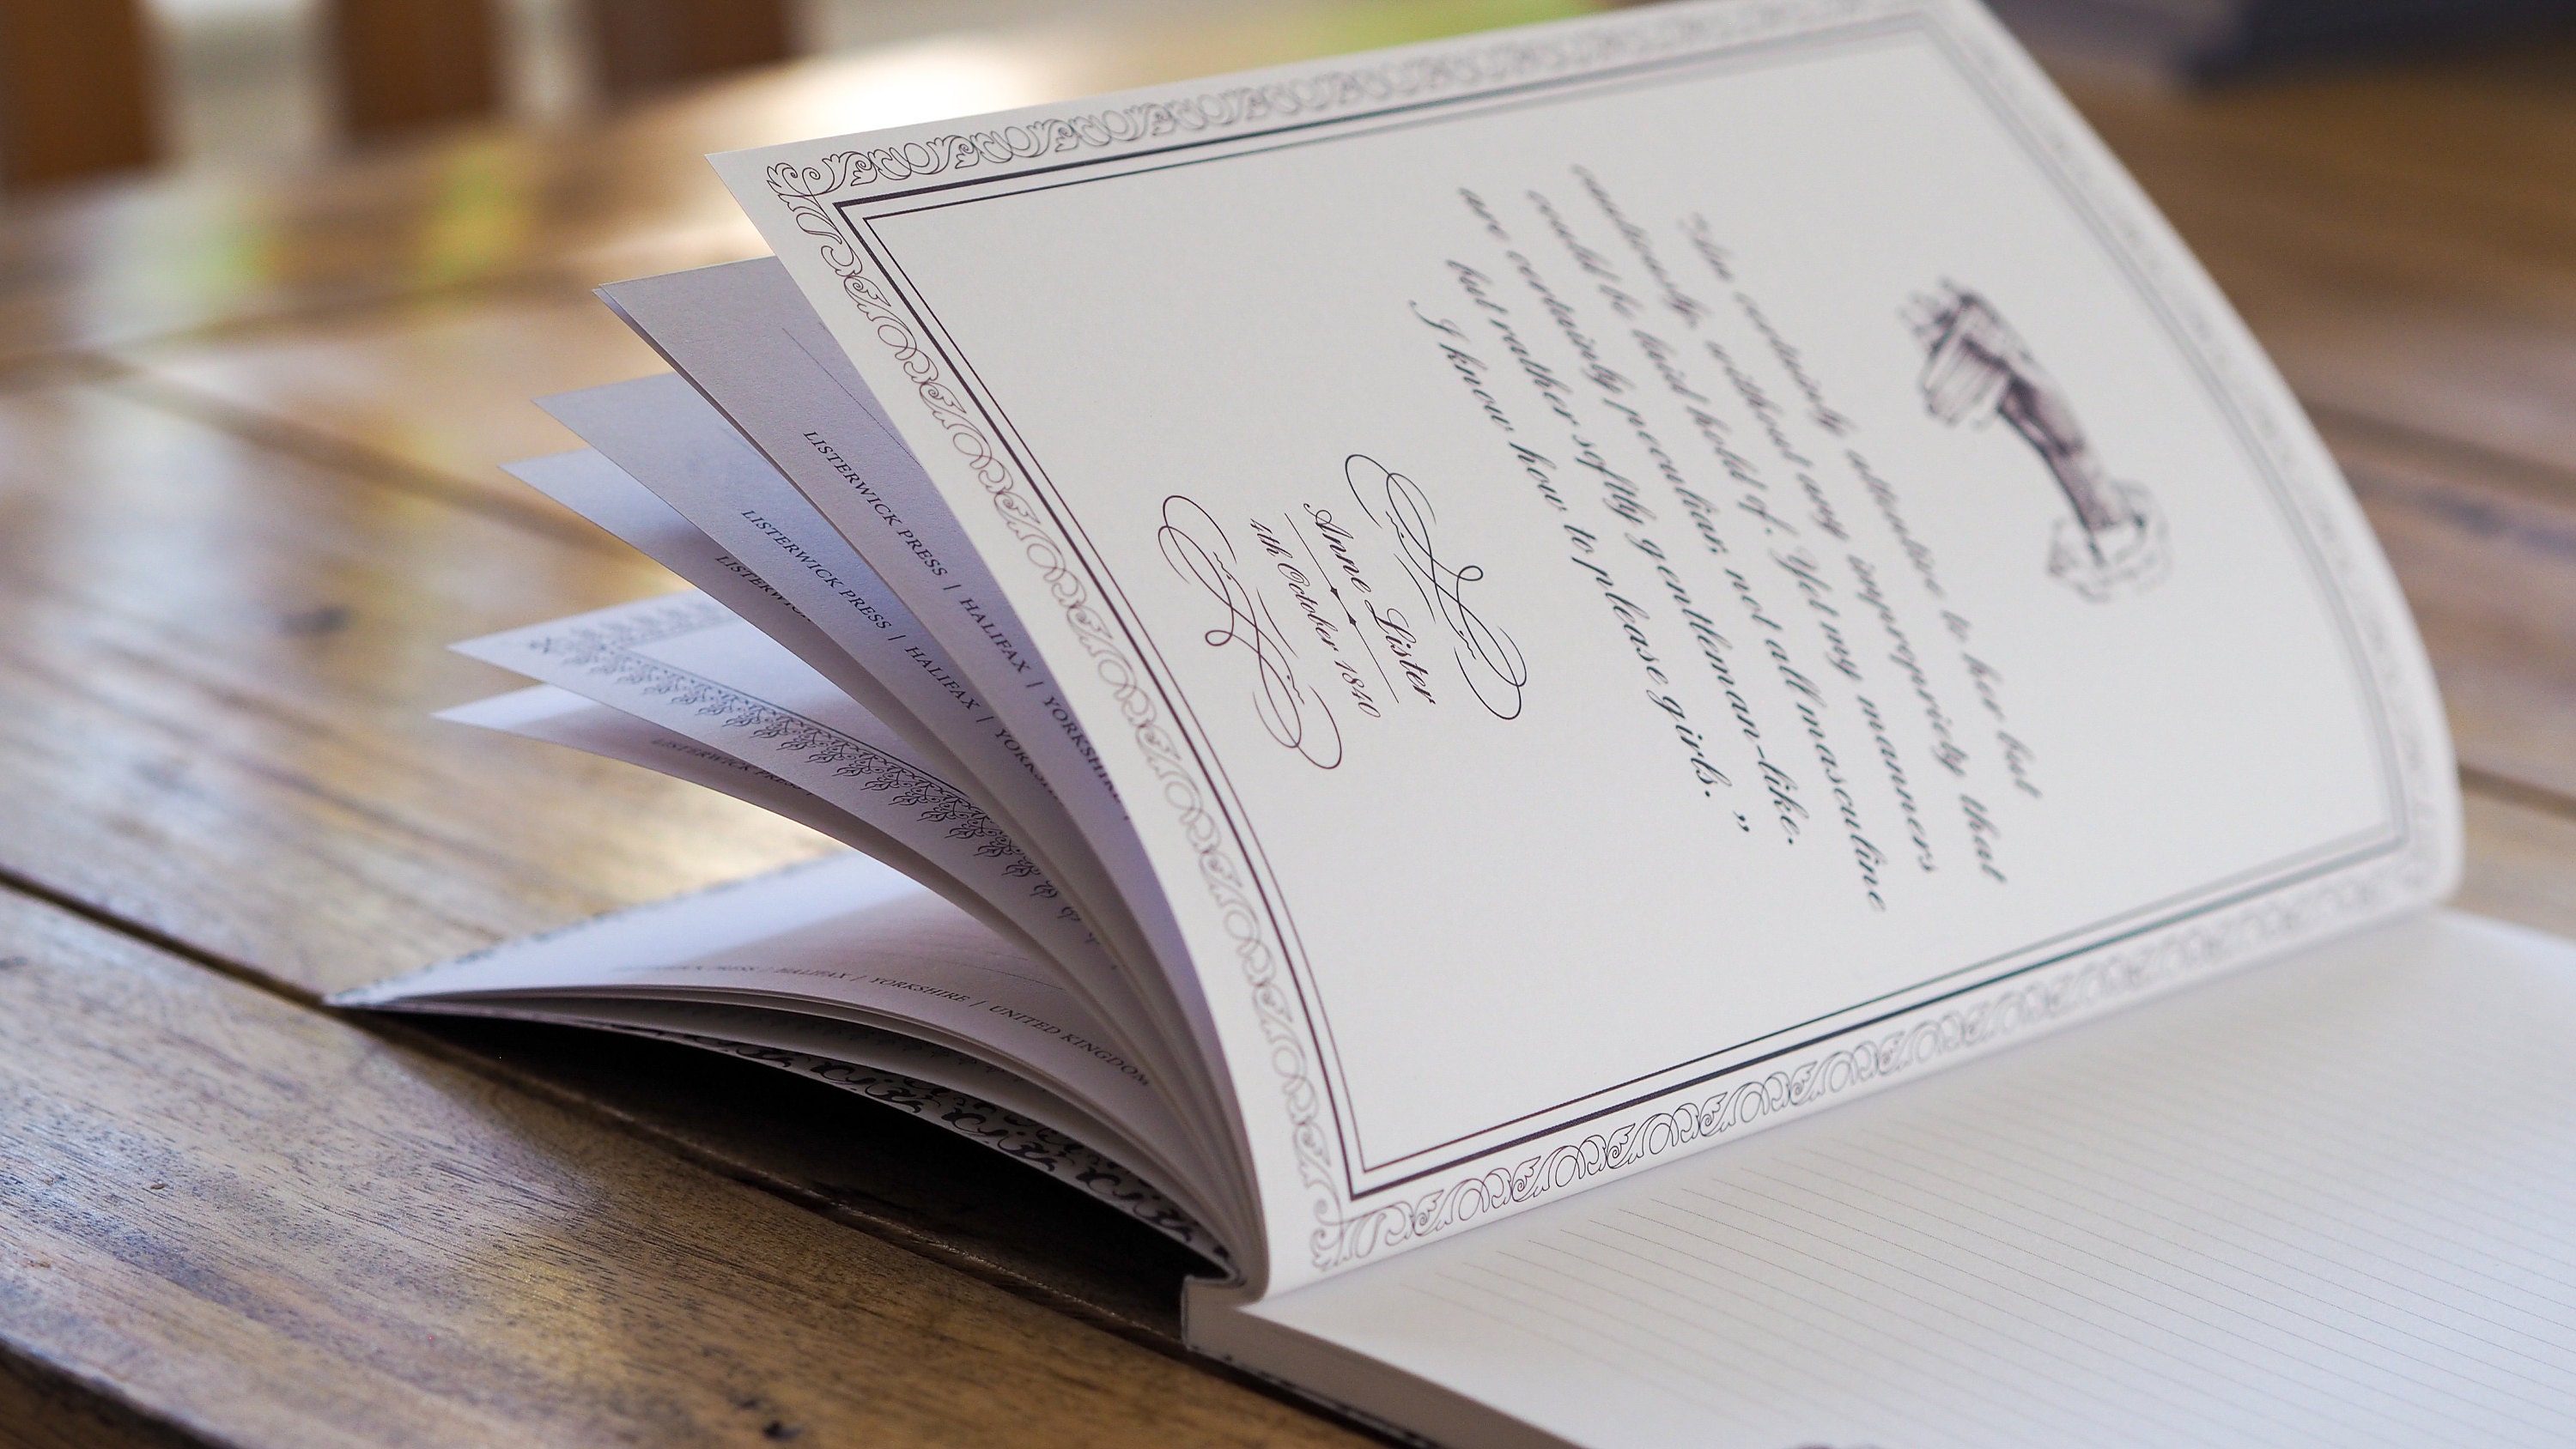 "Am certainly attentive to her but
cautiously, without any impropriety that
could be laid hold of. Yet my manners
are certainly peculiar, not all masculine
but rather softly gentleman-like.
I know how to please girls."
Anne Lister
4th October 1840
LISTERWICK PRESS | HALIFAX | YORKSHIRE
LISTERWICK PRESS | HALIFAX | YORKSHIRE
LISTERWICK
LISTERWICK PRESS
PRESS | HALIFAX | YORKSHIRE | UNITED KINGDOM